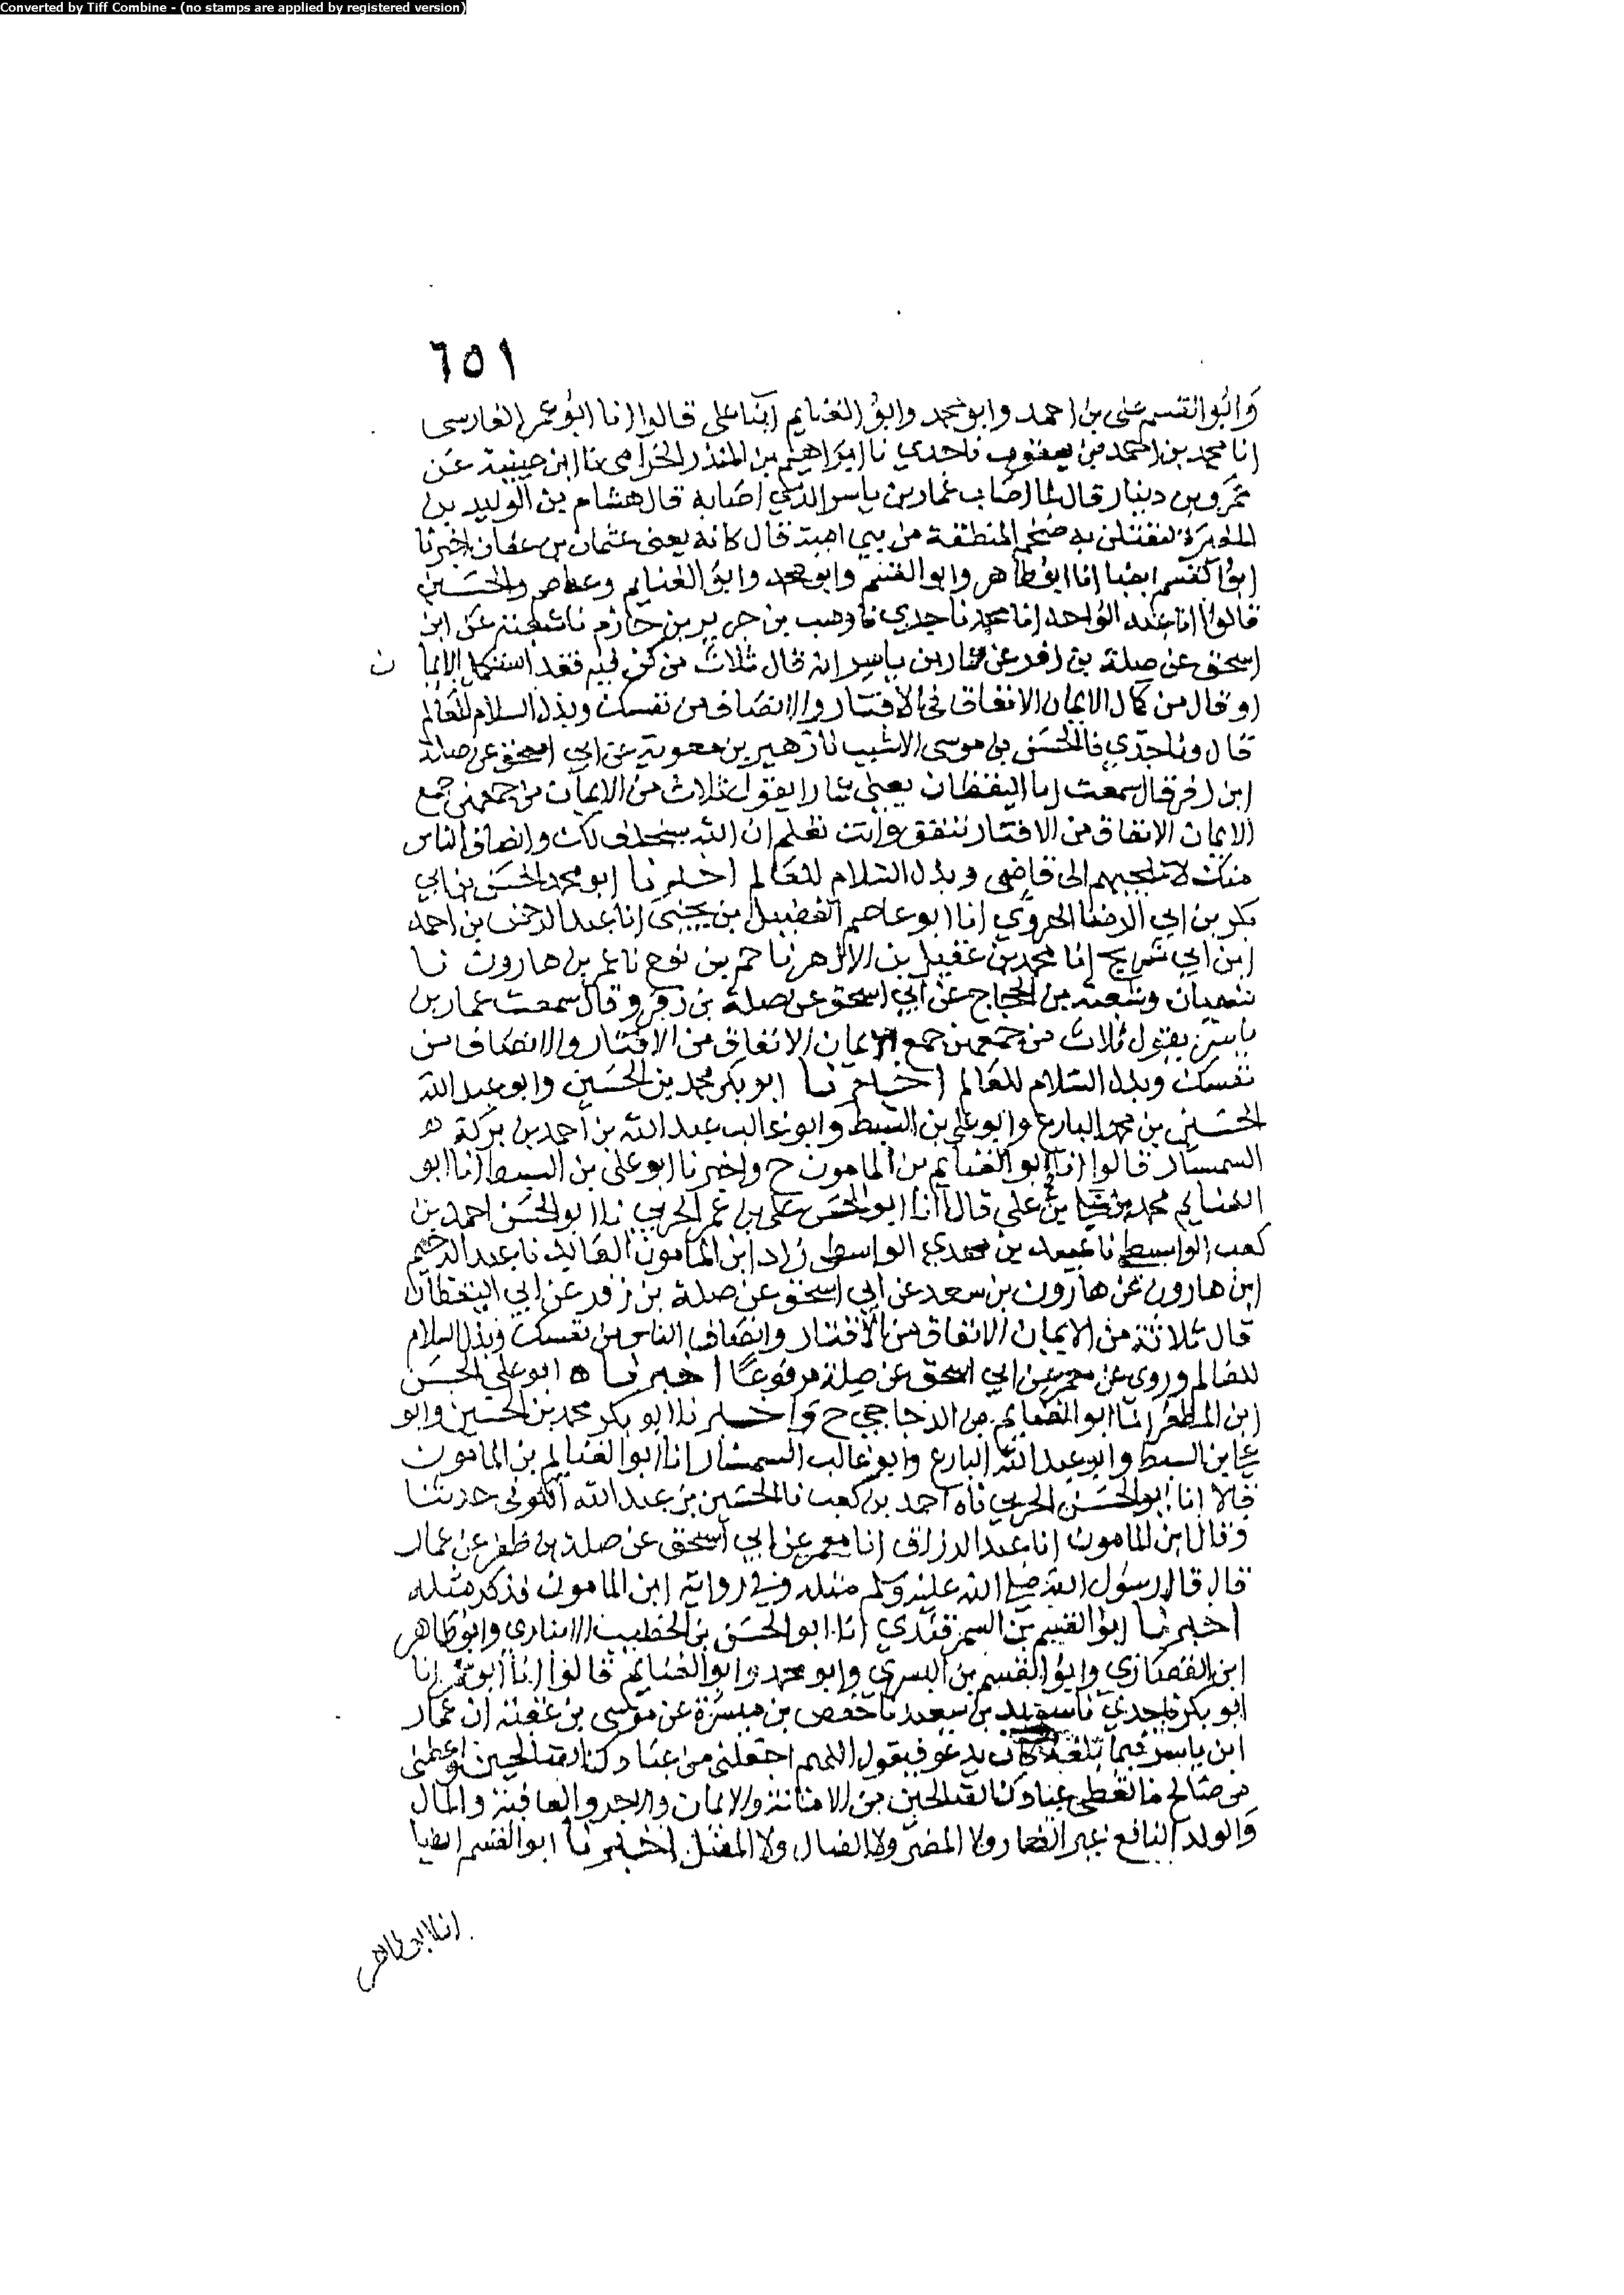 Converted by Tiff Combine - (no stamps are applied by registered version)
٦٥١
وابو القسم على بن احمد وابو محمد وابو الغنايم ابنا على قالوا انا ابو عمر الفارسى
انا محمد بن احمد بن يعقوب نا جدي نا ابراهيم بن المنذر الحزامى نا ابن عيينة عن
عمرو بن دينار قال لما اصاب عمار بن ياسر الذي اصابه قال هشام بن الوليد بن
المغيرة ليقتلن به ضخم المنطقة من بني امية قال كانه يعنى عثمان بن عفان اخبرنا
ابو القسم ايضا انا ابو طاهر وابو القسم وابو محمد وابو الغنايم وعاصم والحسين
قالوا انا عبد الواحد انا محمد نا جدي نا وهب بن جرير بن حازم نا شعبة عن ابى
اسحق عن صلة بن زفر عن عمار بن ياسر انه قال ثلاث من كن فيه فقد استكمل الايما ن
او قال من كمال الايمان الانفاق في الاقتار والانصاف من نفسك وبذل السلام للعالم
قال ونا جدي نا الحسن بن موسى الاشيب نا زهير بن معوية عن ابي اسحق عن صلة
ابن زفر قال سمعت ابا اليقظان يعنى عمارا يقول ثلاث من الايمان من جمعهن جمع
الايمان الانفاق من الاقتار تنفق وانت تعلم ان الله سيخلف لك وانصاف الناس
منك لا تلجيهم الى قاضى وبذل السلام للعالم اخبرنا ابو محمد الحسن بن ابي
بكر بن ابي الرضا الهروي انا ابو عاصم الفضيل بن يحيى انا عبد الرحمن بن احمد
ابن ابي شريح انا محمد بن عقيل بن الازهر نا حم بن نوح نا عمر بن هارون نا
سفيان وشعبة بن الحجاج عن ابي اسحق عن صلة بن زفر وقال سمعت عمار بن
ياسر يقول ثلاث من جمعهن جمع الايمان الانفاق من الاقتار والانصاف من
نفسك وبذل السلام للعالم اخبرنا ابو بكر محمد بن الحسين وابو عبد الله
الحسين بن محمد البارع وابو على بن السبط وابو غالب عبد الله بن احمد بن بركة
السمسار قالوا انا ابو الغنايم بن المامون ح واخبرنا ابو على بن السبط انا ابو
الغنايم محمد بن علي بن على قالا انا ابو الحسن على بن عمر الحربي نا ابو الحسن احمد بن
كعب الواسطي نا عبيد بن مهدي الواسطى زاد ابن المامون نا عبد الرحيم
ابن هارون عن هارون بن سعد عن ابي اسحق عن صلة بن زفر عن ابي اليقظان
قال ثلاثة من الايمان الانفاق من الاقتار وانصاف الناس من نفسك وبذل السلام
للعالم وروى عن معمر عن ابي اسحق عن صلة مرفوعا اخبرناه ابو على الحسن
ابن المظفر انا ابو الغنايم بن الدجاجي ح واخبرنا ابو بكر محمد بن الحسين وابو
على بن السبط وابو عبد الله البارع وابو غالب السمسار انا ابو الغنايم بن المامون
قالا انا ابو الحسن الحربي نا احمد بن كعب نا الحسين بن عبد الله الكوفى حدثنا
وقال ابن المامون انا عبد الرزاق انا معمر عن ابي اسحق عن صلة بن ظفر عن عمار
قال قال رسول الله صلى الله عليه وسلم مثله وفي رواية ابن المامون فذكر مثله
اخبرنا ابو القسم بن السمرقندي انا ابو الحسن بن الخطيب الانبارى وابو طاهر
ابن القصارى وابو القسم بن البسري وابو محمد وابو الغنايم قالوا انا ابو عمر انا
ابو بكر نا جدي نا سويد بن سعيد نا حفص بن ميسرة عن موسى بن عقبة ان عمار
ابن ياسر فيما بلغه كان يدعو فيقول اللهم اجعلنى من عبادك الصالحين واعطنى
من صالح ما تعطى عبادك الصالحين من الامانة والايمان والاجر والعافية والمال
والولد النافع غير الضار ولا المضر ولا الضال ولا المضل اخبرنا ابو القسم ايضا
انا ابو طاهر